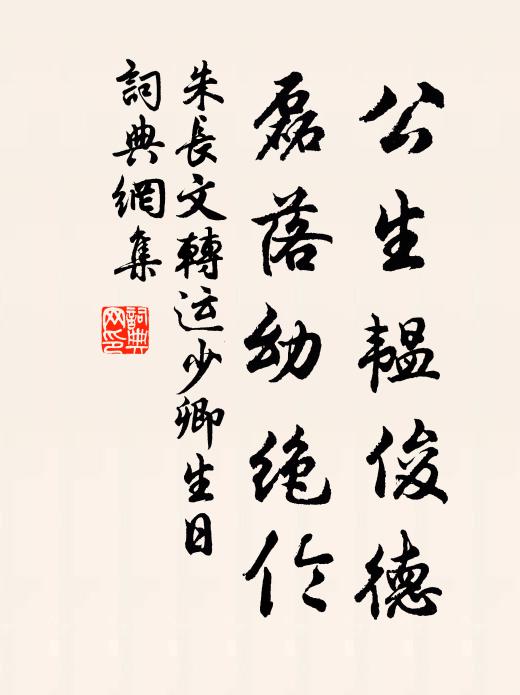 公生韞俊德
磊落幼絶伦
朱長文轉运少卿生日
詞典網集
詞典
网印